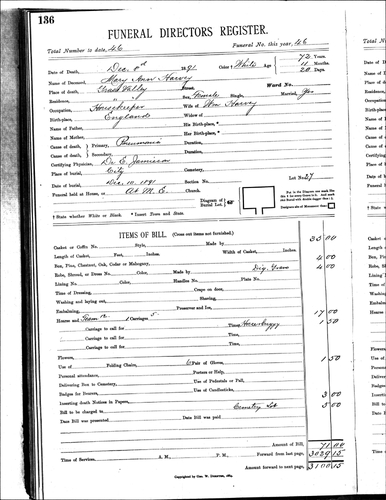 136
FUNERAL DIRECTORS REGISTER.
Total Number to date, 46 Funeral No. this year, 46
Date of Death, Dec. 8th 1891 Color † White Age 72 Years. 11 Months. 20 Days.
Name of Deceased, Mary Ann Harvey
Place of Death, Grass Valley Street. Ward No.
Residence, Sex, Female Single, Married, Yes
Occupation, Housekeeper Wife of Wm Harvey
Birth-place, England Widow of
Name of Father, His Birth-place,
Name of Mother, Her Birth-place,
Cause of death, Primary, Pneumonia Duration,
Cause of death, Secondary, Duration,
Certifying Physician, Dr. E. Jamison
Place of burial, City Lot No. 27
Date of burial, Dec. 10, 1891 Section No.
Funeral held at House, or At M. E. Church.
Diagram of Burial Lot.
† State whether White or Black. * Insert Town and State.
ITEMS OF BILL. (Cross out items not furnished.)
Casket or Coffin No. Style, Made by 35 00
Length of Casket, Feet, Inches. Width of Casket, Inches.
Box, Pine, Chestnut, Oak, Cedar or Mahogany, 4 00
Robe, Shroud, or Dress No. Color, Made by Dig Grave 4 00
Lining No. Color, Handles No. Plate No.
Time of Dressing, Crape on door,
Washing and laying out, Shaving,
Embalming, Preserver and Ice,
Hearse and Carriages 5. 17 00
Carriage to call for Time, Horse buggy 1 50
Carriage to call for Time,
Carriage to call for Time,
Flowers,
Use of Folding Chairs, 6 Pair of Gloves, 1 50
Personal attendance, Porters or Help,
Delivering Box to Cemetery, Use of Pedestals or Pall,
Badges for Bearers, Use of Candlesticks,
Inserting death Notices in Papers, 3 00
Bill to be charged to Cemetry Lot 5 00
Date Bill was presented Date Bill was paid
Amount of Bill, 71 00
Time of Services, A. M., P. M. Forward from last page, 3029 15
Amount forward to next page, 3100 15